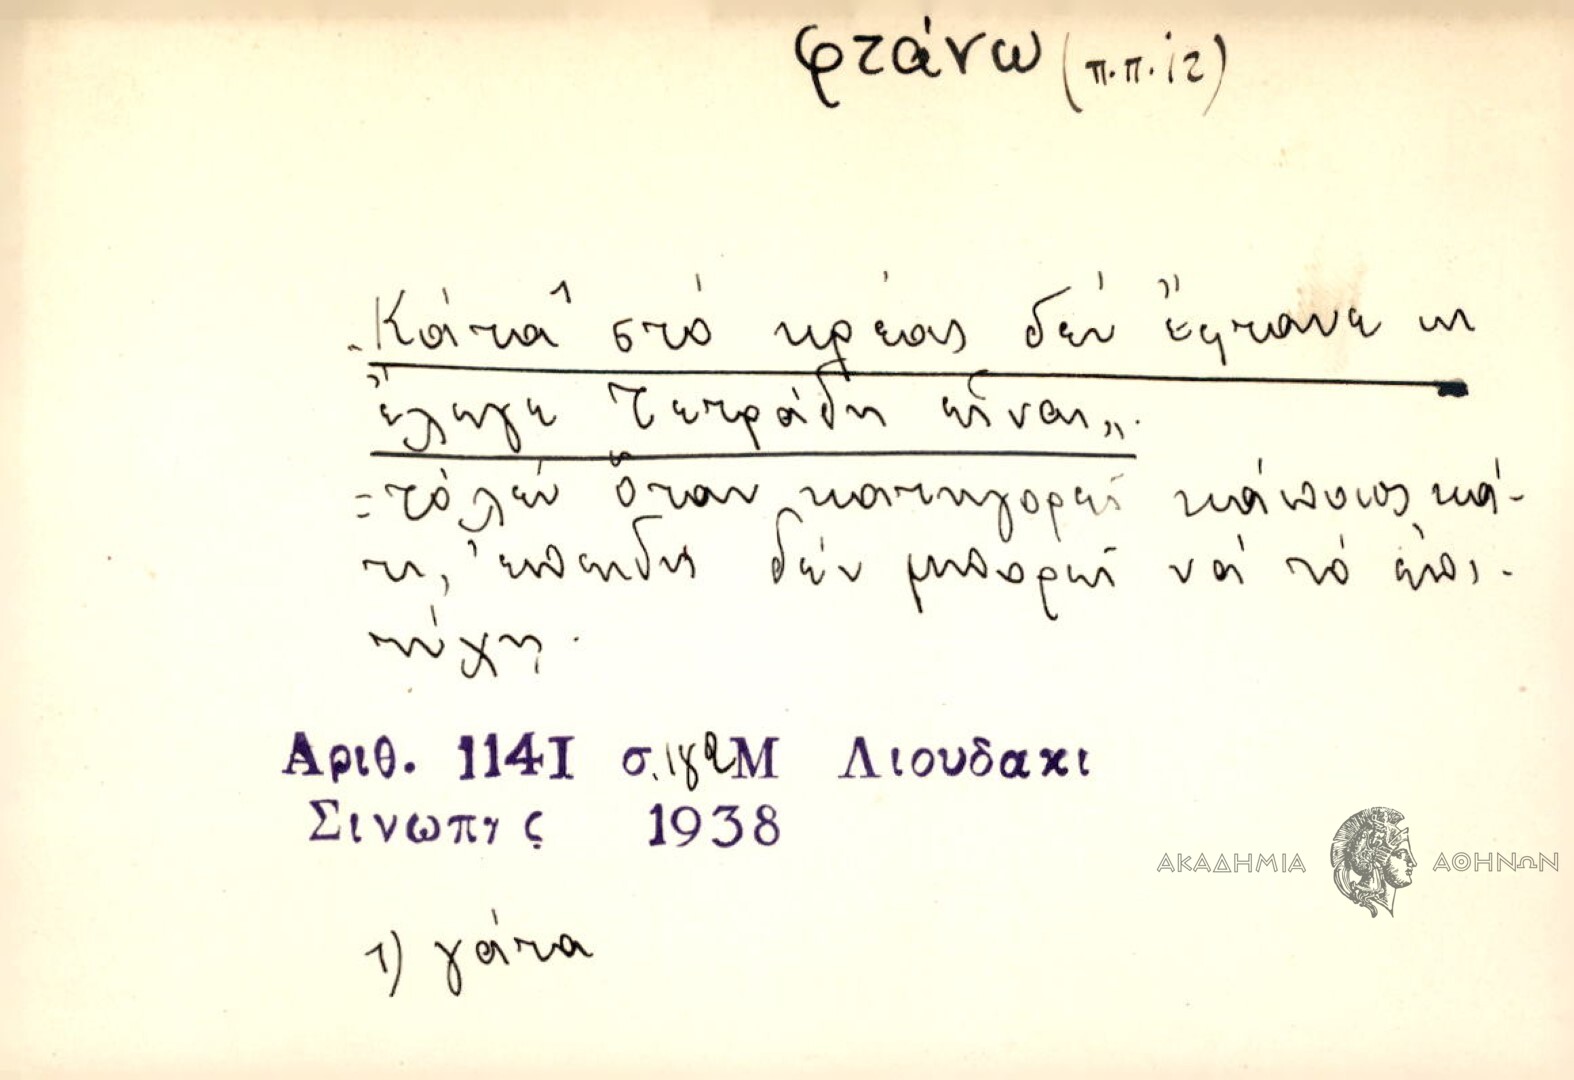 φτάνω (π.π. ι2)
„Κάτα¹ στό κρέας δέν ἔφτανε κι
ἔλεγε Τετράδη εἶναι„.
= τό λέν ὅταν κατηγορεῖ κάποιος κά-
τι, ἐπειδή δέν μπορεῖ νά τό ἐπι-
τύχη.
Αριθ. 1141 σ. 182 Μ Λιουδακι
Σινωπης 1938
ΑΚΑΔΗΜΙΑ ΑΘΗΝΩΝ
1) γάτα